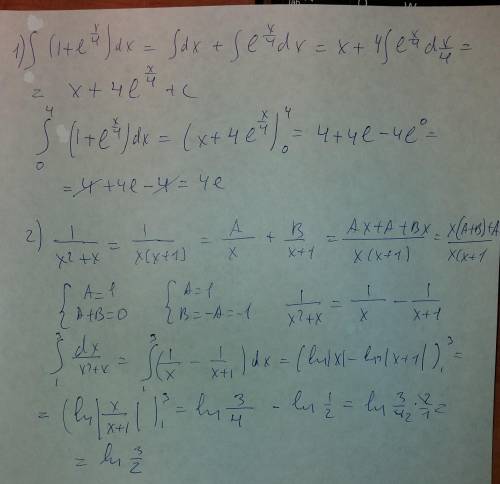 1) ∫ (1+e^{x/4}) dx = ∫dx + ∫e^{x/4} dx = x + 4∫e^{x/4} d x/4 =
= x + 4e^{x/4} + c
∫_0^4 (1+e^{x/4}) dx = (x + 4e^{x/4})_0^4 = 4+4e-4e^0 =
= 4 + 4e - 4 = 4e
2) 1/(x²+x) = 1/(x(x+1)) = A/x + B/(x+1) = (Ax+A+Bx)/(x(x+1)) = (x(A+B)+A)/(x(x+1
{A=1 A+B=0 {A=1 B=-A=-1 1/(x²+x) = 1/x - 1/(x+1)
∫_1^3 dx/(x²+x) = ∫_1^3 (1/x - 1/(x+1)) dx = (ln|x| - ln|x+1|)_1^3 =
= (ln|x/(x+1)|)_1^3 = ln 3/4 - ln 1/2 = ln 3/4_2 · 2/1 =
= ln 3/2